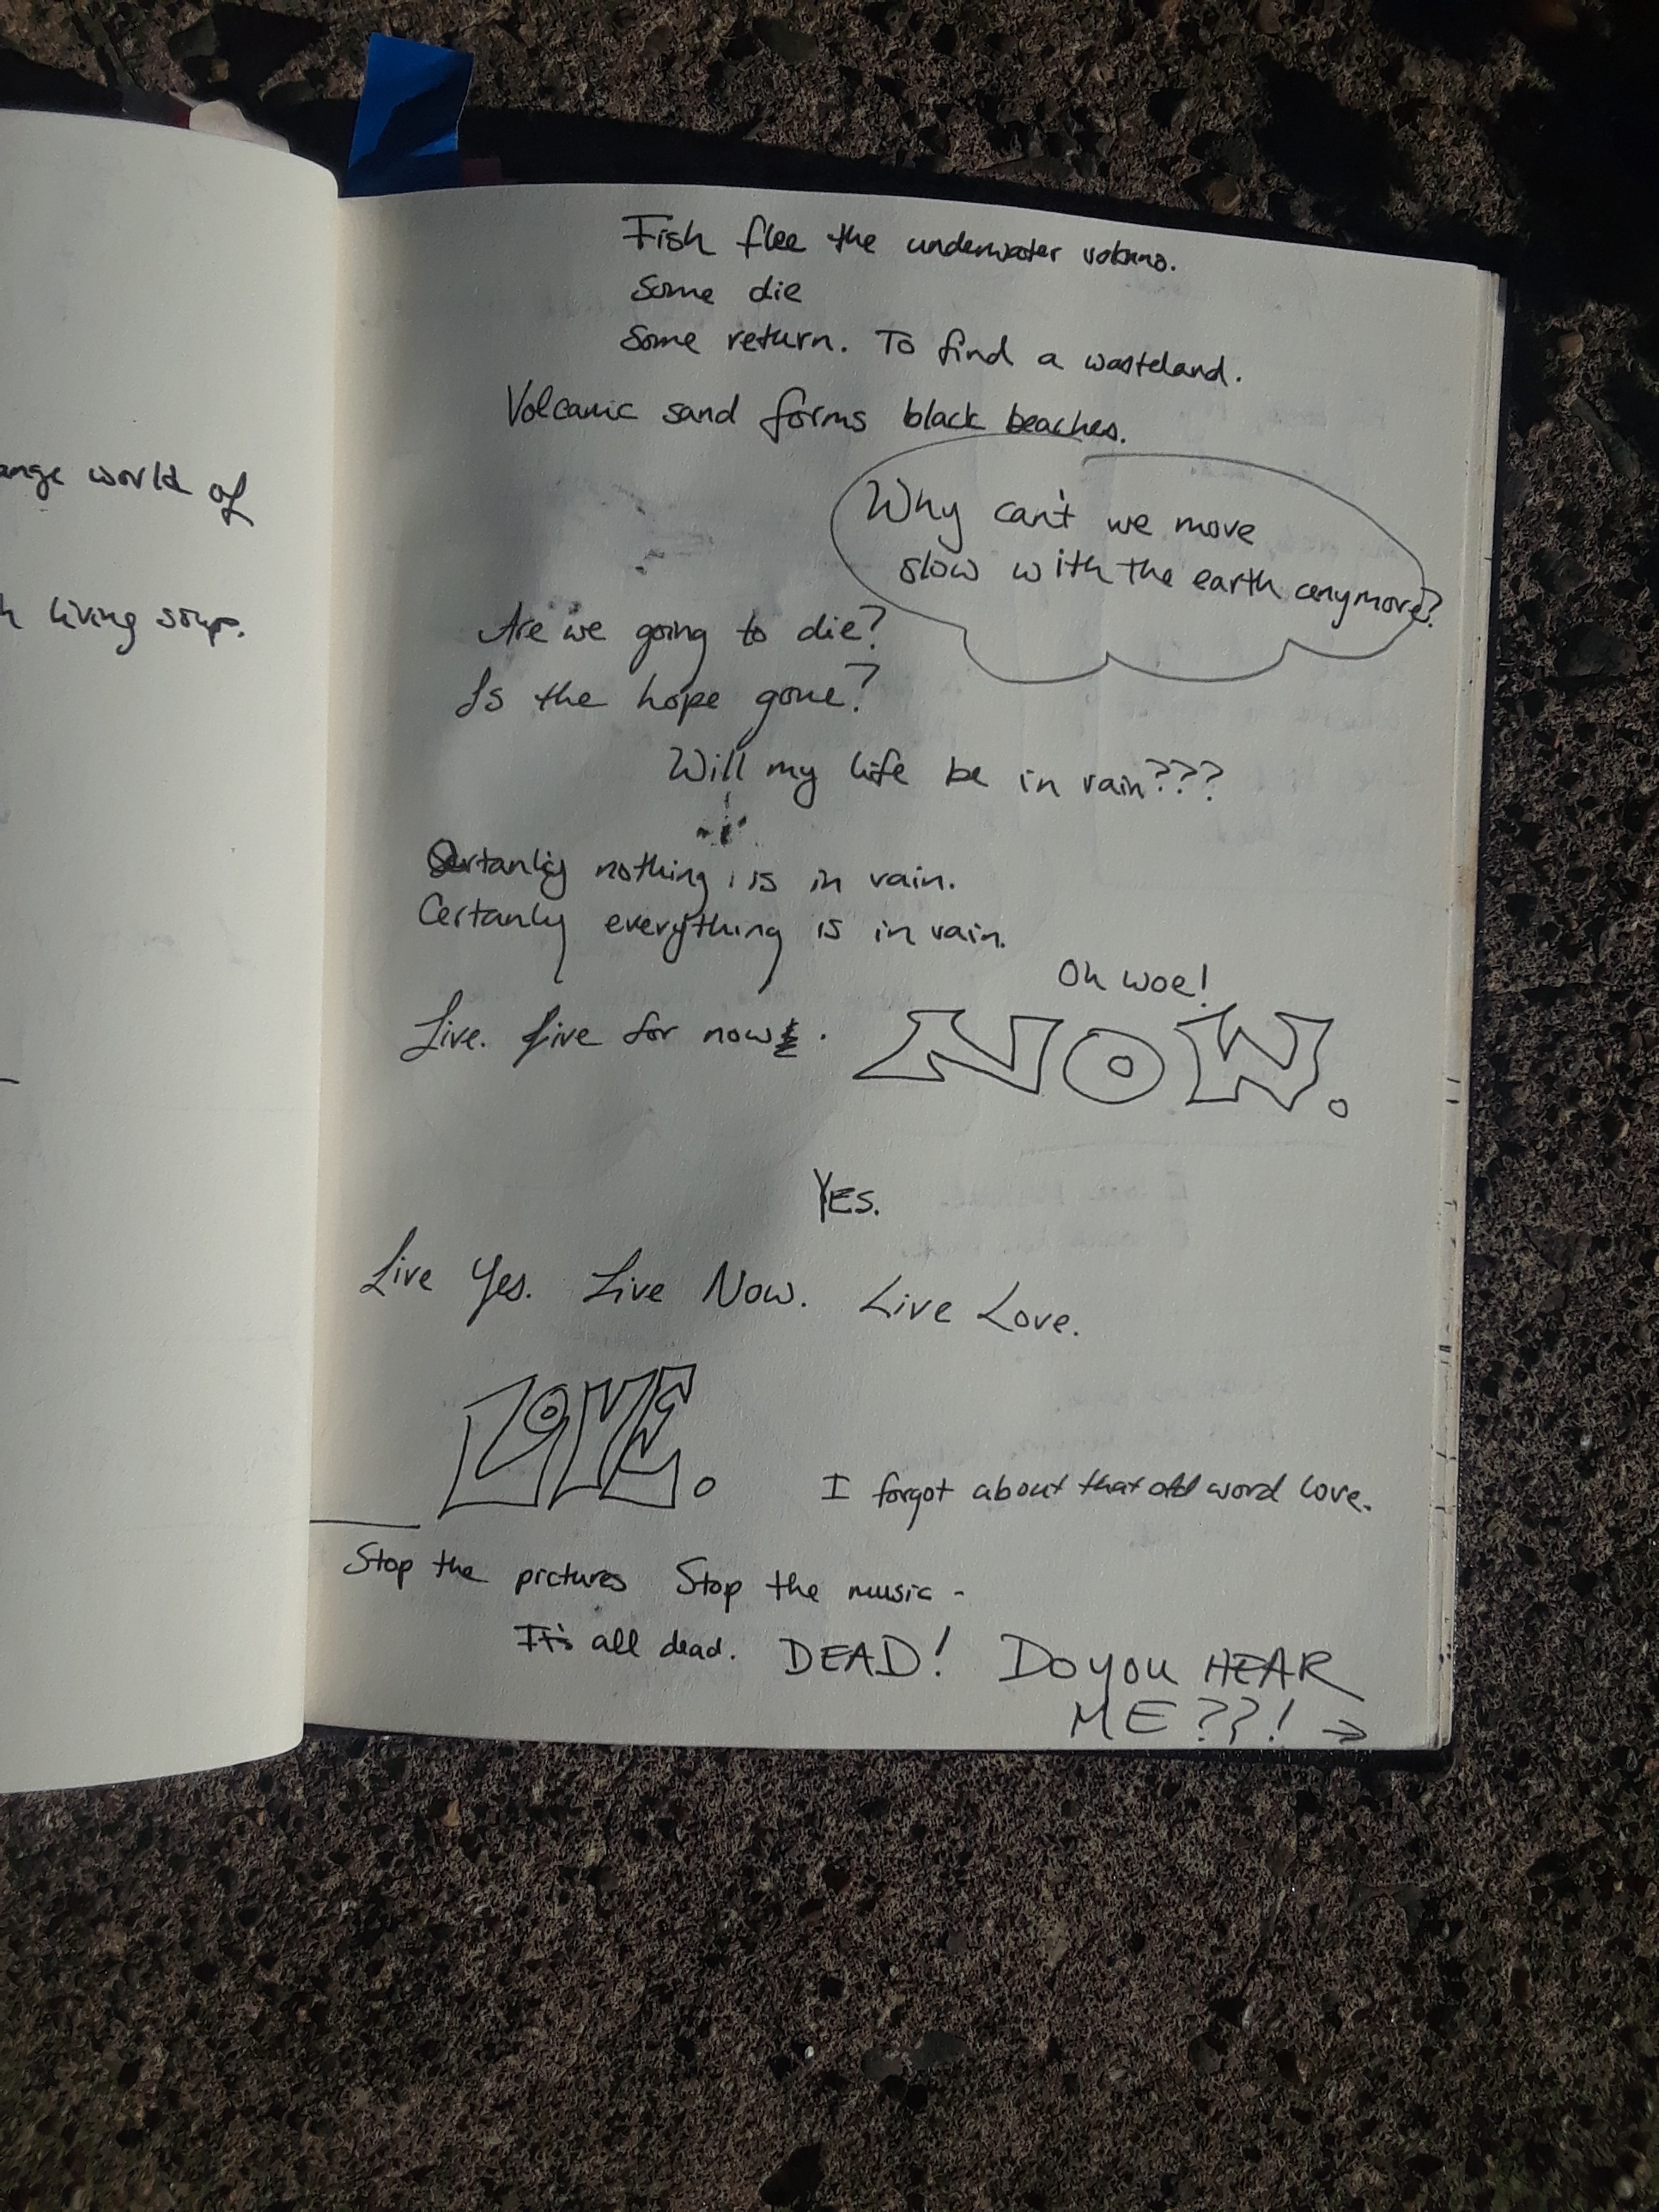 world of
living soup.
Fish flee the underwater volcano.
Some die
Some return. To find a wasteland.
Volcanic sand forms black beaches.
Why can't we move
slow with the earth anymore?
Are we going to die?
Is the hope gone?
Will my life be in vain???
Certanly nothing is in vain.
Certanly everything is in vain.
Oh woe!
Live. Live for now. NOW.
YES.
Live Yes. Live Now. Live Love.
LOVE.
I forgot about that old word love.
Stop the pictures Stop the music -
It's all dead. DEAD! Do you HEAR
ME??! →